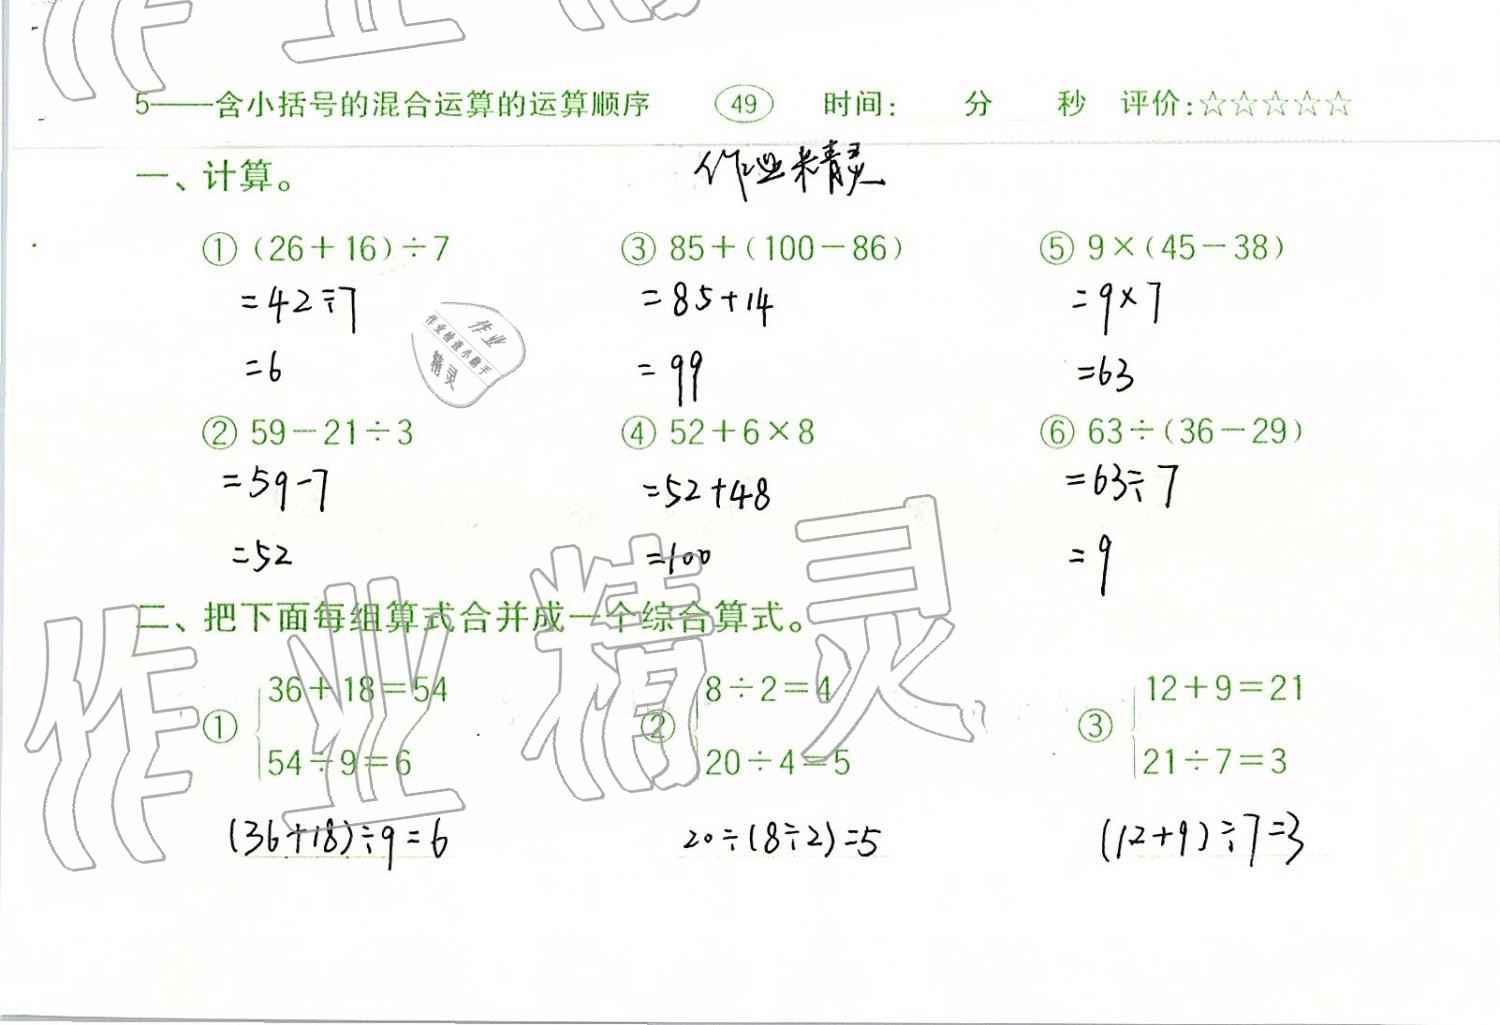 5——含小括号的混合运算的运算顺序 49 时间: 分 秒 评价:☆☆☆☆☆
一、计算。 作业精灵
①(26+16)÷7 ③85+(100-86) ⑤9×(45-38)
=42÷7 =85+14 =9×7
=6 =99 =63
作业
作业检查小助手
精灵
②59-21÷3 ④52+6×8 ⑥63÷(36-29)
=59-7 =52+48 =63÷7
=52 =100 =9
二、把下面每组算式合并成一个综合算式。
作业精灵
36+18=54 8÷2=4 12+9=21
① ② ③
54÷9=6 20÷4=5 21÷7=3
(36+18)÷9=6 20÷(8÷2)=5 (12+9)÷7=3